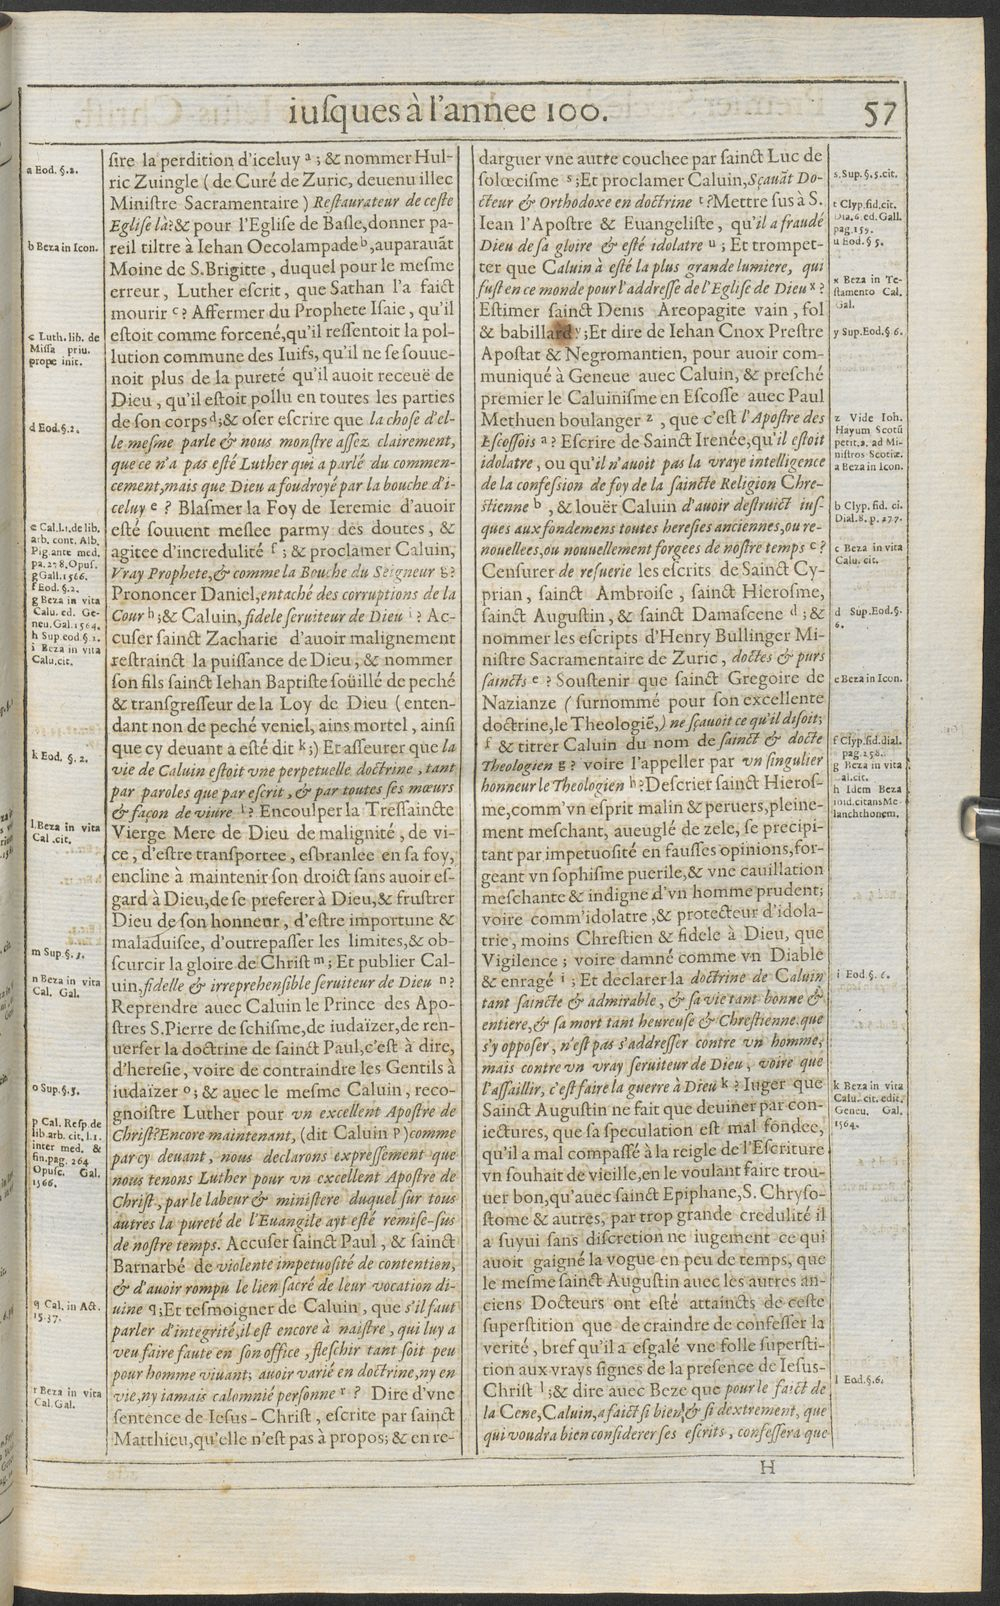 iuſques à l'annee 100.
57
a Eod. §.2.
b Beza in Icon.
c Luth. lib. de
Miſſa priu.
prope init.
d Eod.§.2.
e Cal.l.1.de lib.
arb. cont. Alb.
Pig.ante med.
pa.278.Opuſ.
Gall.1566.
f Eod. §.2.
g Beza in vita
Calu. ed. Ge-
neu.Gal.1564.
h Sup eod.§.2.
i Beza in vita
Calu.cit.
k Eod. §. 2.
l Beza in vita
Cal .cit.
m Sup.§.3.
n Beza in vita
Cal. Gal.
o Sup.§.5.
p Cal. Reſp.de
lib.arb. cit. l.1.
inter med. &
fin.pag. 264
Opuſc. Gal.
1566.
q Cal. in Act.
15.37.
r Beza in vita
Cal.Gal.
ſire la perdition d'iceluy a ; & nommer Hul-
ric Zuingle ( de Curé de Zuric, deuenu illec
Miniſtre Sacramentaire ) Reſtaurateur de ceſte
Egliſe là? & pour l'Egliſe de Baſle,donner pa-
reil tiltre à Iehan Oecolampade b,auparauāt
Moine de S.Brigitte , duquel pour le meſme
erreur, Luther eſcrit, que Sathan l'a faict
mourir c? Affermer du Prophete Iſaie , qu'il
eſtoit comme forcené,qu'il reſſentoit la pol-
lution commune des Iuifs, qu'il ne ſe ſouue-
noit plus de la pureté qu'il auoit receuë de
Dieu , qu'il eſtoit pollu en toutes les parties
de ſon corps d;& oſer eſcrire que la choſe d'el-
le meſme parle & nous monſtre aſſez clairement,
que ce n'a pas eſté Luther qui a parlé du commen-
cement,mais que Dieu a foudroyé par la bouche d'i-
celuy e ? Blaſmer la Foy de Ieremie d'auoir
eſté ſouuent meſlee parmy des doutes , &
agitee d'incredulité f ; & proclamer Caluin,
Vray Prophete, & comme la Bouche du Seigneur g?
Prononcer Daniel,entaché des corruptions de la
Cour h;& Caluin, fidele ſeruiteur de Dieu i ? Ac-
cuſer ſainct Zacharie d'auoir malignement
reſtrainct la puiſſance de Dieu , & nommer
ſon fils ſainct Iehan Baptiſte ſoüillé de peché
& tranſgreſſeur de la Loy de Dieu ( enten-
dant non de peché veniel, ains mortel , ainſi
que cy deuant a eſté dit k;) Et aſſeurer que la
vie de Caluin eſtoit vne perpetuelle doctrine , tant
par paroles que par eſcrit , & par toutes ſes mœurs
& façon de viure l ? Encoulper la Treſſaincte
Vierge Mere de Dieu de malignité , de vi-
ce , d'eſtre tranſportee , esbranlee en ſa foy,
encline à maintenir ſon droict ſans auoir eſ-
gard à Dieu,de ſe preferer à Dieu,& fruſtrer
Dieu de ſon honneur, d'eſtre importune &
maladuiſee, d'outrepaſſer les limites,& ob-
ſcurcir la gloire de Chriſt m ; Et publier Cal-
uin,fidelle & irreprehenſible ſeruiteur de Dieu n?
Reprendre auec Caluin le Prince des Apo-
ſtres S.Pierre de ſchiſme,de iudaïzer,de ren-
uerſer la doctrine de ſainct Paul,c'eſt à dire,
d'hereſie, voire de contraindre les Gentils à
iudaïzer o; & auec le meſme Caluin , reco-
gnoiſtre Luther pour vn excellent Apoſtre de
Chriſt?Encore maintenant, (dit Caluin p )comme
par cy deuant , nous declarons expreſſement que
nous tenons Luther pour vn excellent Apoſtre de
Chriſt, par le labeur & miniſtere duquel ſur tous
autres la pureté de l'Euangile ayt eſté remiſe-ſus
de noſtre temps. Accuſer ſainct Paul , & ſainct
Barnarbé de violente impetuoſité de contention,
& d'auoir rompu le lien ſacré de leur vocation di-
uine q;Et teſmoigner de Caluin , que s'il faut
parler d'integrité,il eſt encore à naiſtre , qui luy a
veu faire faute en ſon office , fleſchir tant ſoit peu
pour homme viuant; auoir varié en doctrine,ny en
vie,ny iamais calomnié perſonne r ? Dire d'vne
ſentence de Ieſus-Chriſt , eſcrite par ſainct
Matthieu,qu'elle n'eſt pas à propos; & en re-
darguer vne autre couchee par ſainct Luc de
ſolœciſme s ;Et proclamer Caluin,Sçauāt Do-
cteur & Orthodoxe en doctrine t ?Mettre ſus à S.
Iean l'Apoſtre & Euangeliſte , qu'il a fraudé
Dieu de ſa gloire & eſté idolatre u ; Et trompet-
ter que Caluin à eſté la plus grande lumiere, qui
fuſt en ce monde pour l'addreſſe de l'Egliſe de Dieu x ?
Eſtimer ſainct Denis Areopagite vain , fol
& babillard y ;Et dire de Iehan Cnox Preſtre
Apoſtat & Negromantien, pour auoir com-
muniqué à Geneue auec Caluin, & preſché
premier le Caluiniſme en Eſcoſſe auec Paul
Methuen boulanger z , que c'eſt l'Apoſtre des
Eſcoſſois a ? Eſcrire de Sainct Irenée,qu'il eſtoit
idolatre , ou qu'il n'auoit pas la vraye intelligence
de la confeſsion de foy de la ſaincte Religion Chre-
ſtienne b , & louër Caluin d'auoir deſtruict iuſ-
ques aux fondemens toutes hereſies anciennes,ou re-
nouellees,ou nouuellement forgees de noſtre temps c ?
Cenſurer de reſuerie les eſcrits de Sainct Cy-
prian , ſainct Ambroiſe , ſainct Hieroſme,
ſainct Auguſtin , & ſainct Damaſcene d ; &
nommer les eſcripts d'Henry Bullinger Mi-
niſtre Sacramentaire de Zuric , doctes & purs
ſaincts e ? Souſtenir que ſainct Gregoire de
Nazianze ( ſurnommé pour ſon excellente
doctrine,le Theologiē,) ne ſçauoit ce qu'il diſoit;
f & titrer Caluin du nom de ſainct & docte
Theologien g ? voire l'appeller par vn ſingulier
honneur le Theologien h?Deſcrier ſainct Hieroſ-
me,comm'vn eſprit malin & peruers,pleine-
ment meſchant, aueuglé de zele, ſe precipi-
tant par impetuoſité en fauſſes opinions,for-
geant vn ſophiſme puerile,& vne cauillation
meſchante & indigne d'vn homme prudent;
voire comm'idolatre ,& protecteur d'idola-
trie , moins Chreſtien & fidele à Dieu, que
Vigilence ; voire damné comme vn Diable
& enragé i ; Et declarer la doctrine de Caluin
tant ſaincte & admirable , & ſa vie tant bonne &
entiere, & ſa mort tant heureuſe & Chreſtienne. que
s'y oppoſer , n'eſt pas s'addreſſer contre vn homme,
mais contre vn vray ſeruiteur de Dieu , voire que
l'aſſaillir, c'eſt faire la guerre à Dieu k ? Iuger que
Sainct Auguſtin ne fait que deuiner par con-
iectures, que ſa ſpeculation eſt mal fondee,
qu'il a mal compaſſé à la reigle de l'Eſcriture
vn ſouhait de vieille,en le voulant faire trou-
uer bon,qu'auec ſainct Epiphane,S. Chryſo-
ſtome & autres, par trop grande credulité il
a ſuyui ſans diſcretion ne iugement ce qui
auoit gaigné la vogue en peu de temps, que
le meſme ſainct Auguſtin auec les autres an-
ciens Docteurs ont eſté attaincts de ceſte
ſuperſtition que de craindre de confeſſer la
verité , bref qu'il a eſgalé vne folle ſuperſti-
tion aux vrays ſignes de la preſence de Ieſus-
Chriſt l ;& dire auec Beze que pour le faict de
la Cene,Caluin,a faict ſi bien,& ſi dextrement, que
qui voudra bien conſiderer ſes eſcrits , confeſſera que
s.Sup.§.5.cit.
t Clyp.fid.cit.
Dia.6.ed.Gall.
pag.159.
u Eod.§ 5.
x Beza in Te-
ſtamento Cal.
Gal.
y Sup.Eod.§.6.
z Vide Ioh.
Hayum Scotū
petit.2. ad Mi-
niſtros Scotiæ.
a Beza in Icon.
b Clyp. fid. ci.
Dial.8. p.277.
c Beza in vita
Calu. cit.
d Sup.Eod.§.
6.
e Beza in Icon.
f Clyp.fid.dial.
pag.258.
g Beza in vita
al.cit.
h Idem Beza
ibid.citans Me-
lanchthonem.
i Eod §. 6.
k Beza in vita
Calu. cit. edit.
Geneu. Gal.
1564.
l Eod.§.6.
H